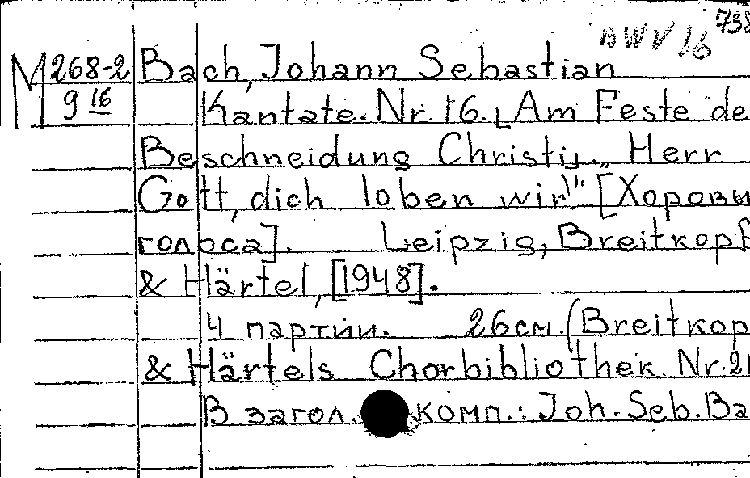 BWV 16 738
M 268-2 Bach, Johann Sebastian
9 16 Kantate. Nr. 16. [Am Feste de
Beschneidung Christi]. „Herr
Gott, dich loben wir" [Хоровы
голоса]. Leipzig, Breitkopf
& Härtel, [1948].
4 партии. 26 см. (Breitkop
& Härtels Chorbibliothek Nr. 2
В загол. комп.: Joh. Seb. Ba